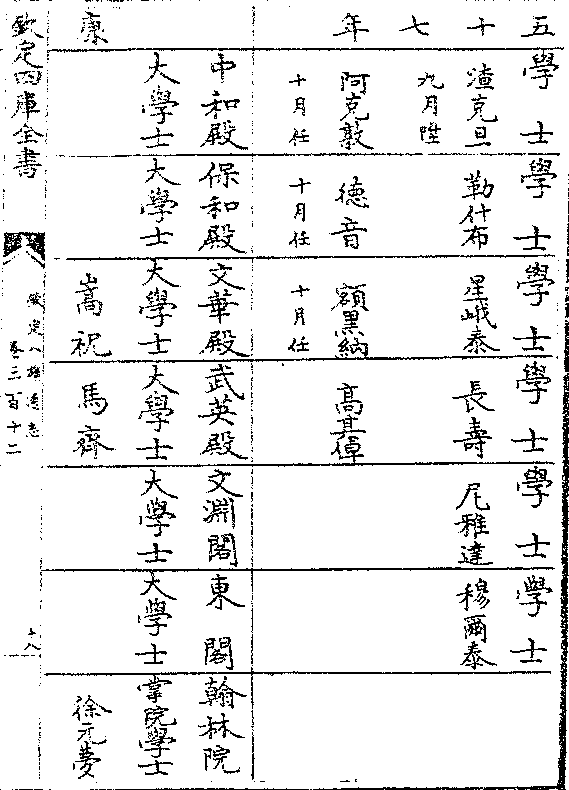 五十七年　康
學士　學士　學士　學士　學士　學士
渣克旦　勒什布　星峨泰　長壽　尼雅達　穆爾泰
九月陞
阿克敦　德音　額黑納　高其倬
十月任　十月任　十月任
中和殿　保和殿　文華殿　武英殿　文淵閣　東閣　翰林院
大學士　大學士　大學士　大學士　大學士　大學士　掌院學士
嵩祝　馬齊　徐元夢
欽定四庫全書
欽定八旗通志
卷三百十二
十八